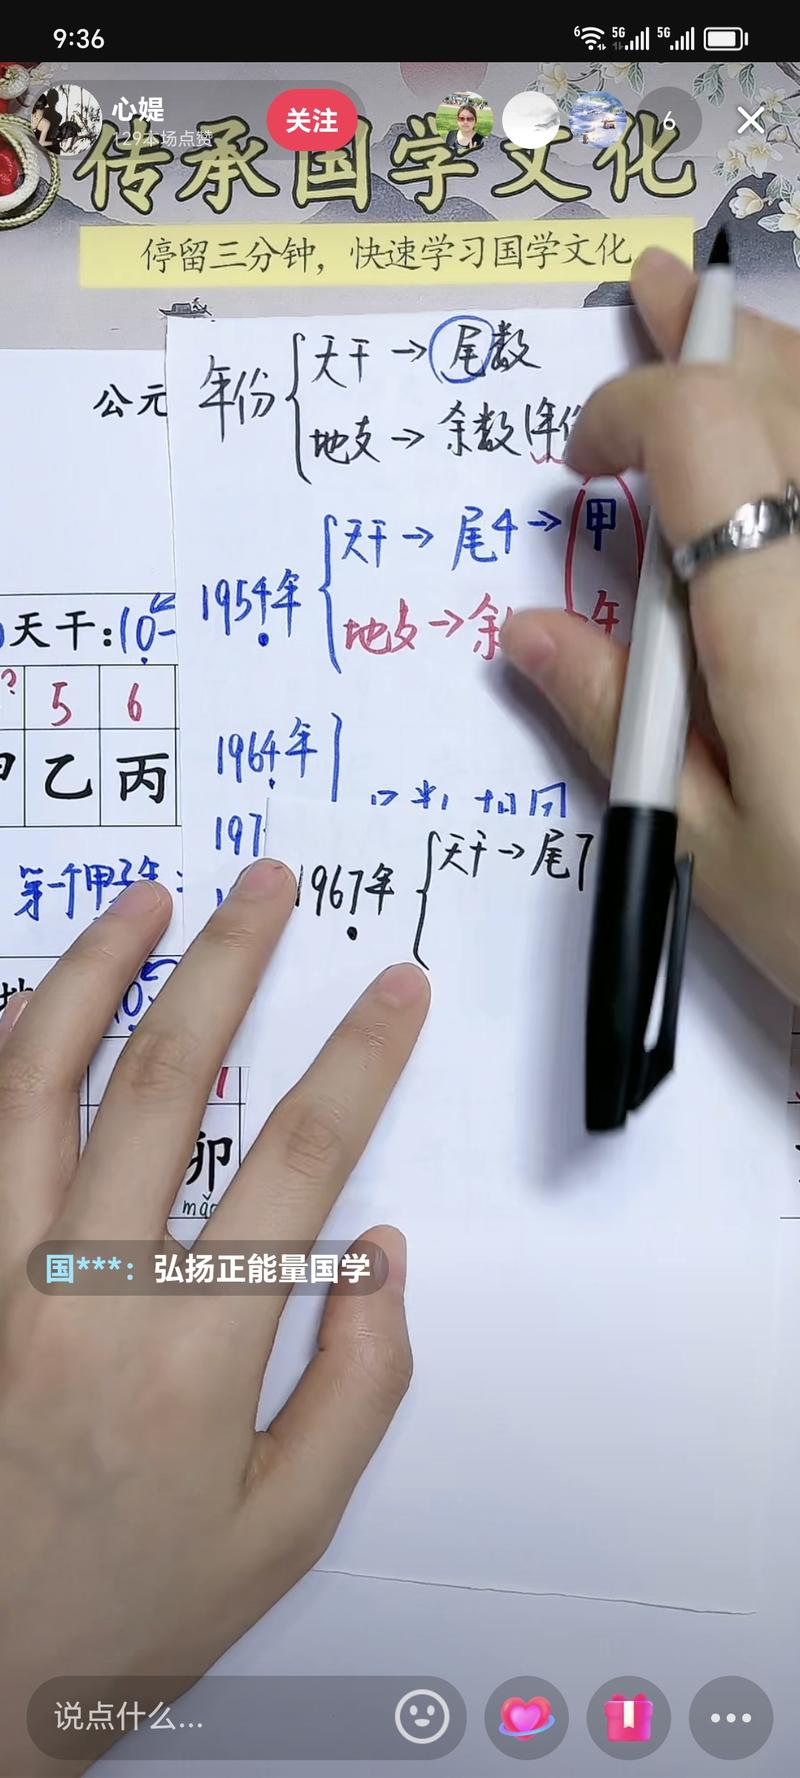 9:36
心媞
129本场点赞
关注
6
传承国学文化
停留三分钟，快速学习国学文化
公元
年份
天干→尾数
地支→余数(年份
1954年
天干→尾4→甲
地支→余
午
天干:(10-
?
5
6
乙
丙
1964年
197
第一个甲子年:
1967年
天干→尾7
卯
mǎo
国***：弘扬正能量国学
说点什么...